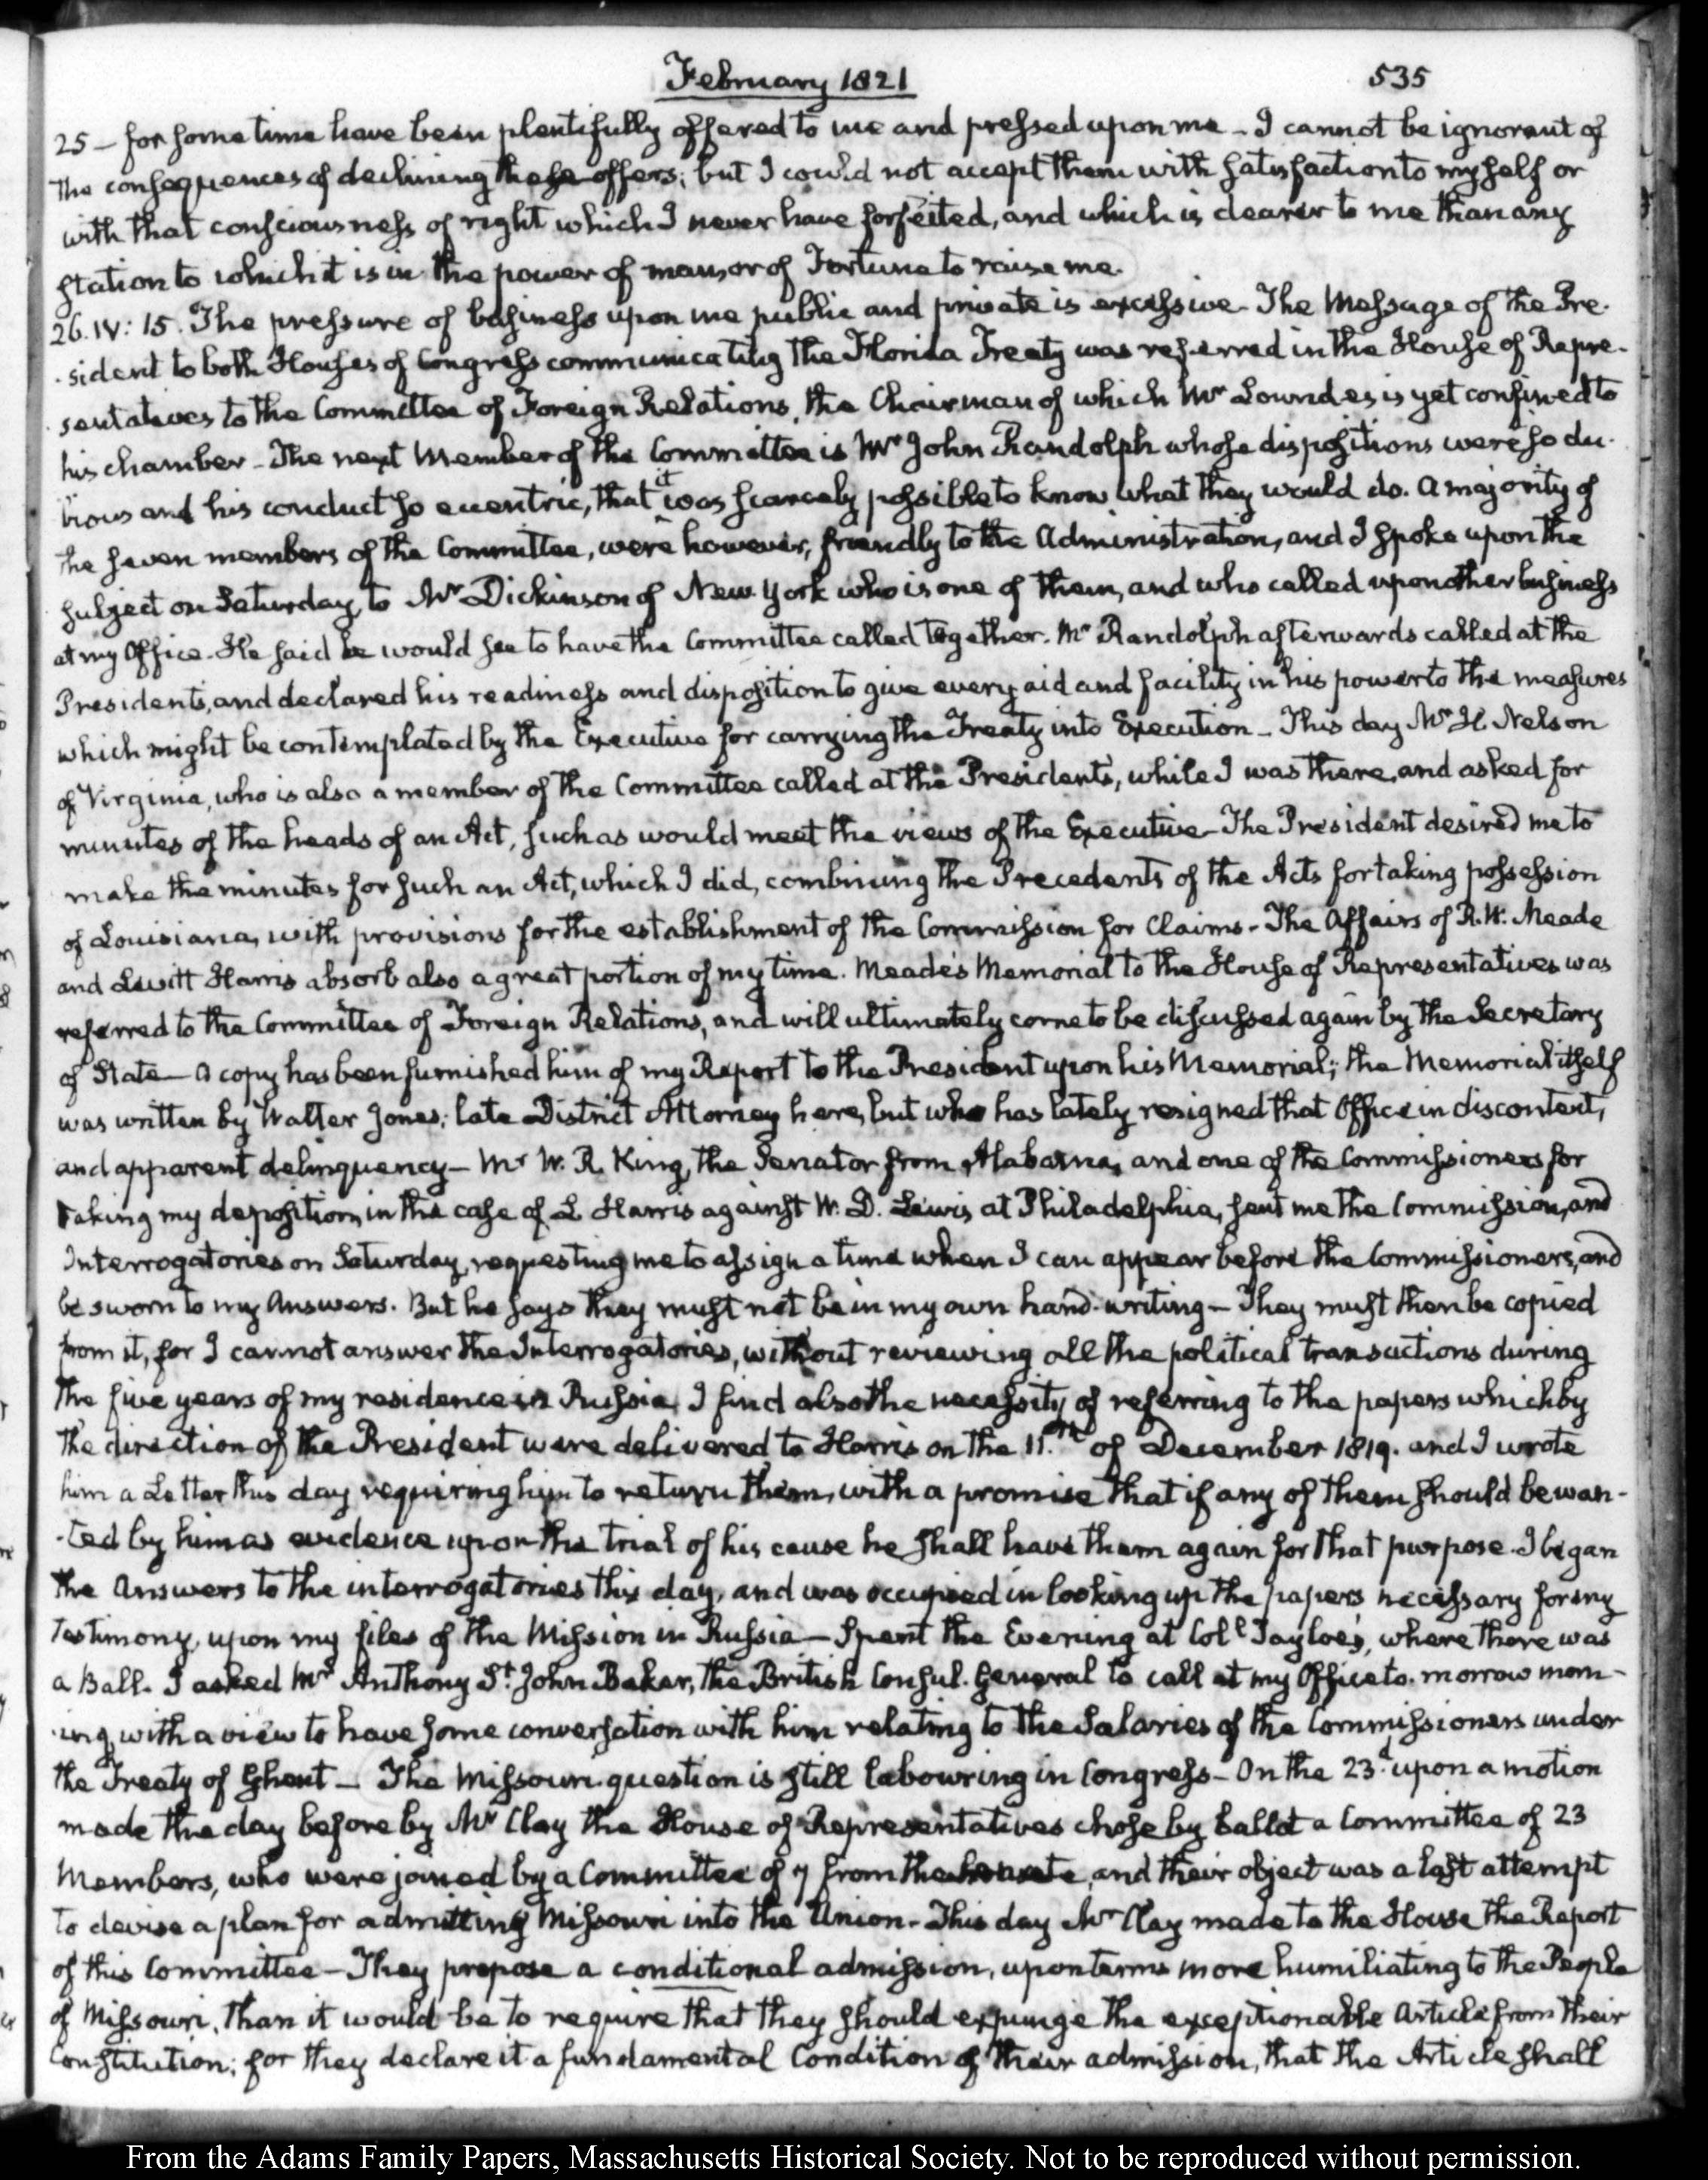 February 1821
535
25 — for some time have been plentifully offered to me and pressed upon me - I cannot be ignorant of
the consequences of declining these offers; but I could not accept them with satisfaction to myself or
with that consciousness of right which I never have forfeited, and which is dearer to me than any
station to which it is in the power of man, or of Fortune to raise me.
26. IV: 15. The pressure of business upon me public and private is excessive - The Message of the Pre-
sident to both Houses of Congress communicating the Florida Treaty was referred in the House of Repre-
sentatives to the Committee of Foreign Relations, the Chairman of which Mr Lowndes is yet confined to
his chamber - The next Member of the Committee is Mr John Randolph whose dispositions were so du-
bious and his conduct so eccentric, that it was scarcely possible to know what they would do. A majority of
the seven members of the Committee, were however, friendly to the Administration, and I spoke upon the
subject on Saturday, to Mr Dickinson of New-York who is one of them, and who called upon other business
at my Office. He said he would see to have the Committee called together. Mr Randolph afterwards called at the
Presidents, and declared his readiness and disposition to give every aid and facility in his power to the measures
which might be contemplated by the Executive for carrying the Treaty into Execution - This day Mr H. Nelson
of Virginia, who is also a member of the Committee called at the President's, while I was there, and asked for
minutes of the heads of an Act, such as would meet the views of the Executive - The President desired me to
make the minutes for such an Act, which I did, combining the Precedents of the Acts for taking possession
of Louisiana, with provisions for the establishment of the Commission for Claims - The Affairs of R. W. Meade
and Levitt Harris absorb also a great portion of my time. Meade's Memorial to the House of Representatives was
referred to the Committee of Foreign Relations, and will ultimately come to be discussed again by the Secretary
of State - A copy has been furnished him of my Report to the President upon his Memorial; the Memorial itself
was written by Walter Jones; late District Attorney here, but who has lately resigned that Office in discontent,
and apparent delinquency - Mr W. R. King, the Senator from Alabama, and one of the Commissioners for
taking my deposition, in the case of L. Harris against W. D. Lewis, at Philadelphia, sent me the Commission, and
Interrogatories on Saturday, requesting me to assign a time when I can appear before the Commissioners, and
be sworn to my Answers. But he says they must not be in my own hand-writing - They must then be copied
from it, for I cannot answer the Interrogatories, without reviewing all the political transactions during
the five years of my residence in Russia, I find also the necessity of referring to the papers which by
the direction of the President were delivered to Harris on the 11.th of December 1819. and I wrote
him a Letter this day requiring him to return them, with a promise that if any of them should be wan-
-ted by him as evidence upon the trial of his cause he shall have them again for that purpose. I began
the Answers to the interrogatories this day, and was occupied in looking up the papers necessary for my
Testimony, upon my files of the Mission in Russia - Spent the Evening at Coll Tayloe's, where there was
a Ball. I asked Mr Anthony St John Baker, the British Consul-General to call at my Office to-morrow morn-
-ing, with a view to have some conversation with him relating to the Salaries of the Commissioners under
the Treaty of Ghent - The Missouri question is still labouring in Congress - On the 23.d upon a motion
made the day before by Mr Clay the House of Representatives chose by ballot a Committee of 23
Members, who were joined by a Committee of 7 from the Senate, and their object was a last attempt
to devise a plan for admitting Missouri into the Union - This day Mr Clay made to the House the Report
of this Committee - They propose a conditional admission, upon terms more humiliating to the People
of Missouri, than it would be to require that they should expunge the exceptionable Article from their
Constitution; for they declare it a fundamental Condition of their admission, that the Article shall
From the Adams Family Papers, Massachusetts Historical Society. Not to be reproduced without permission.